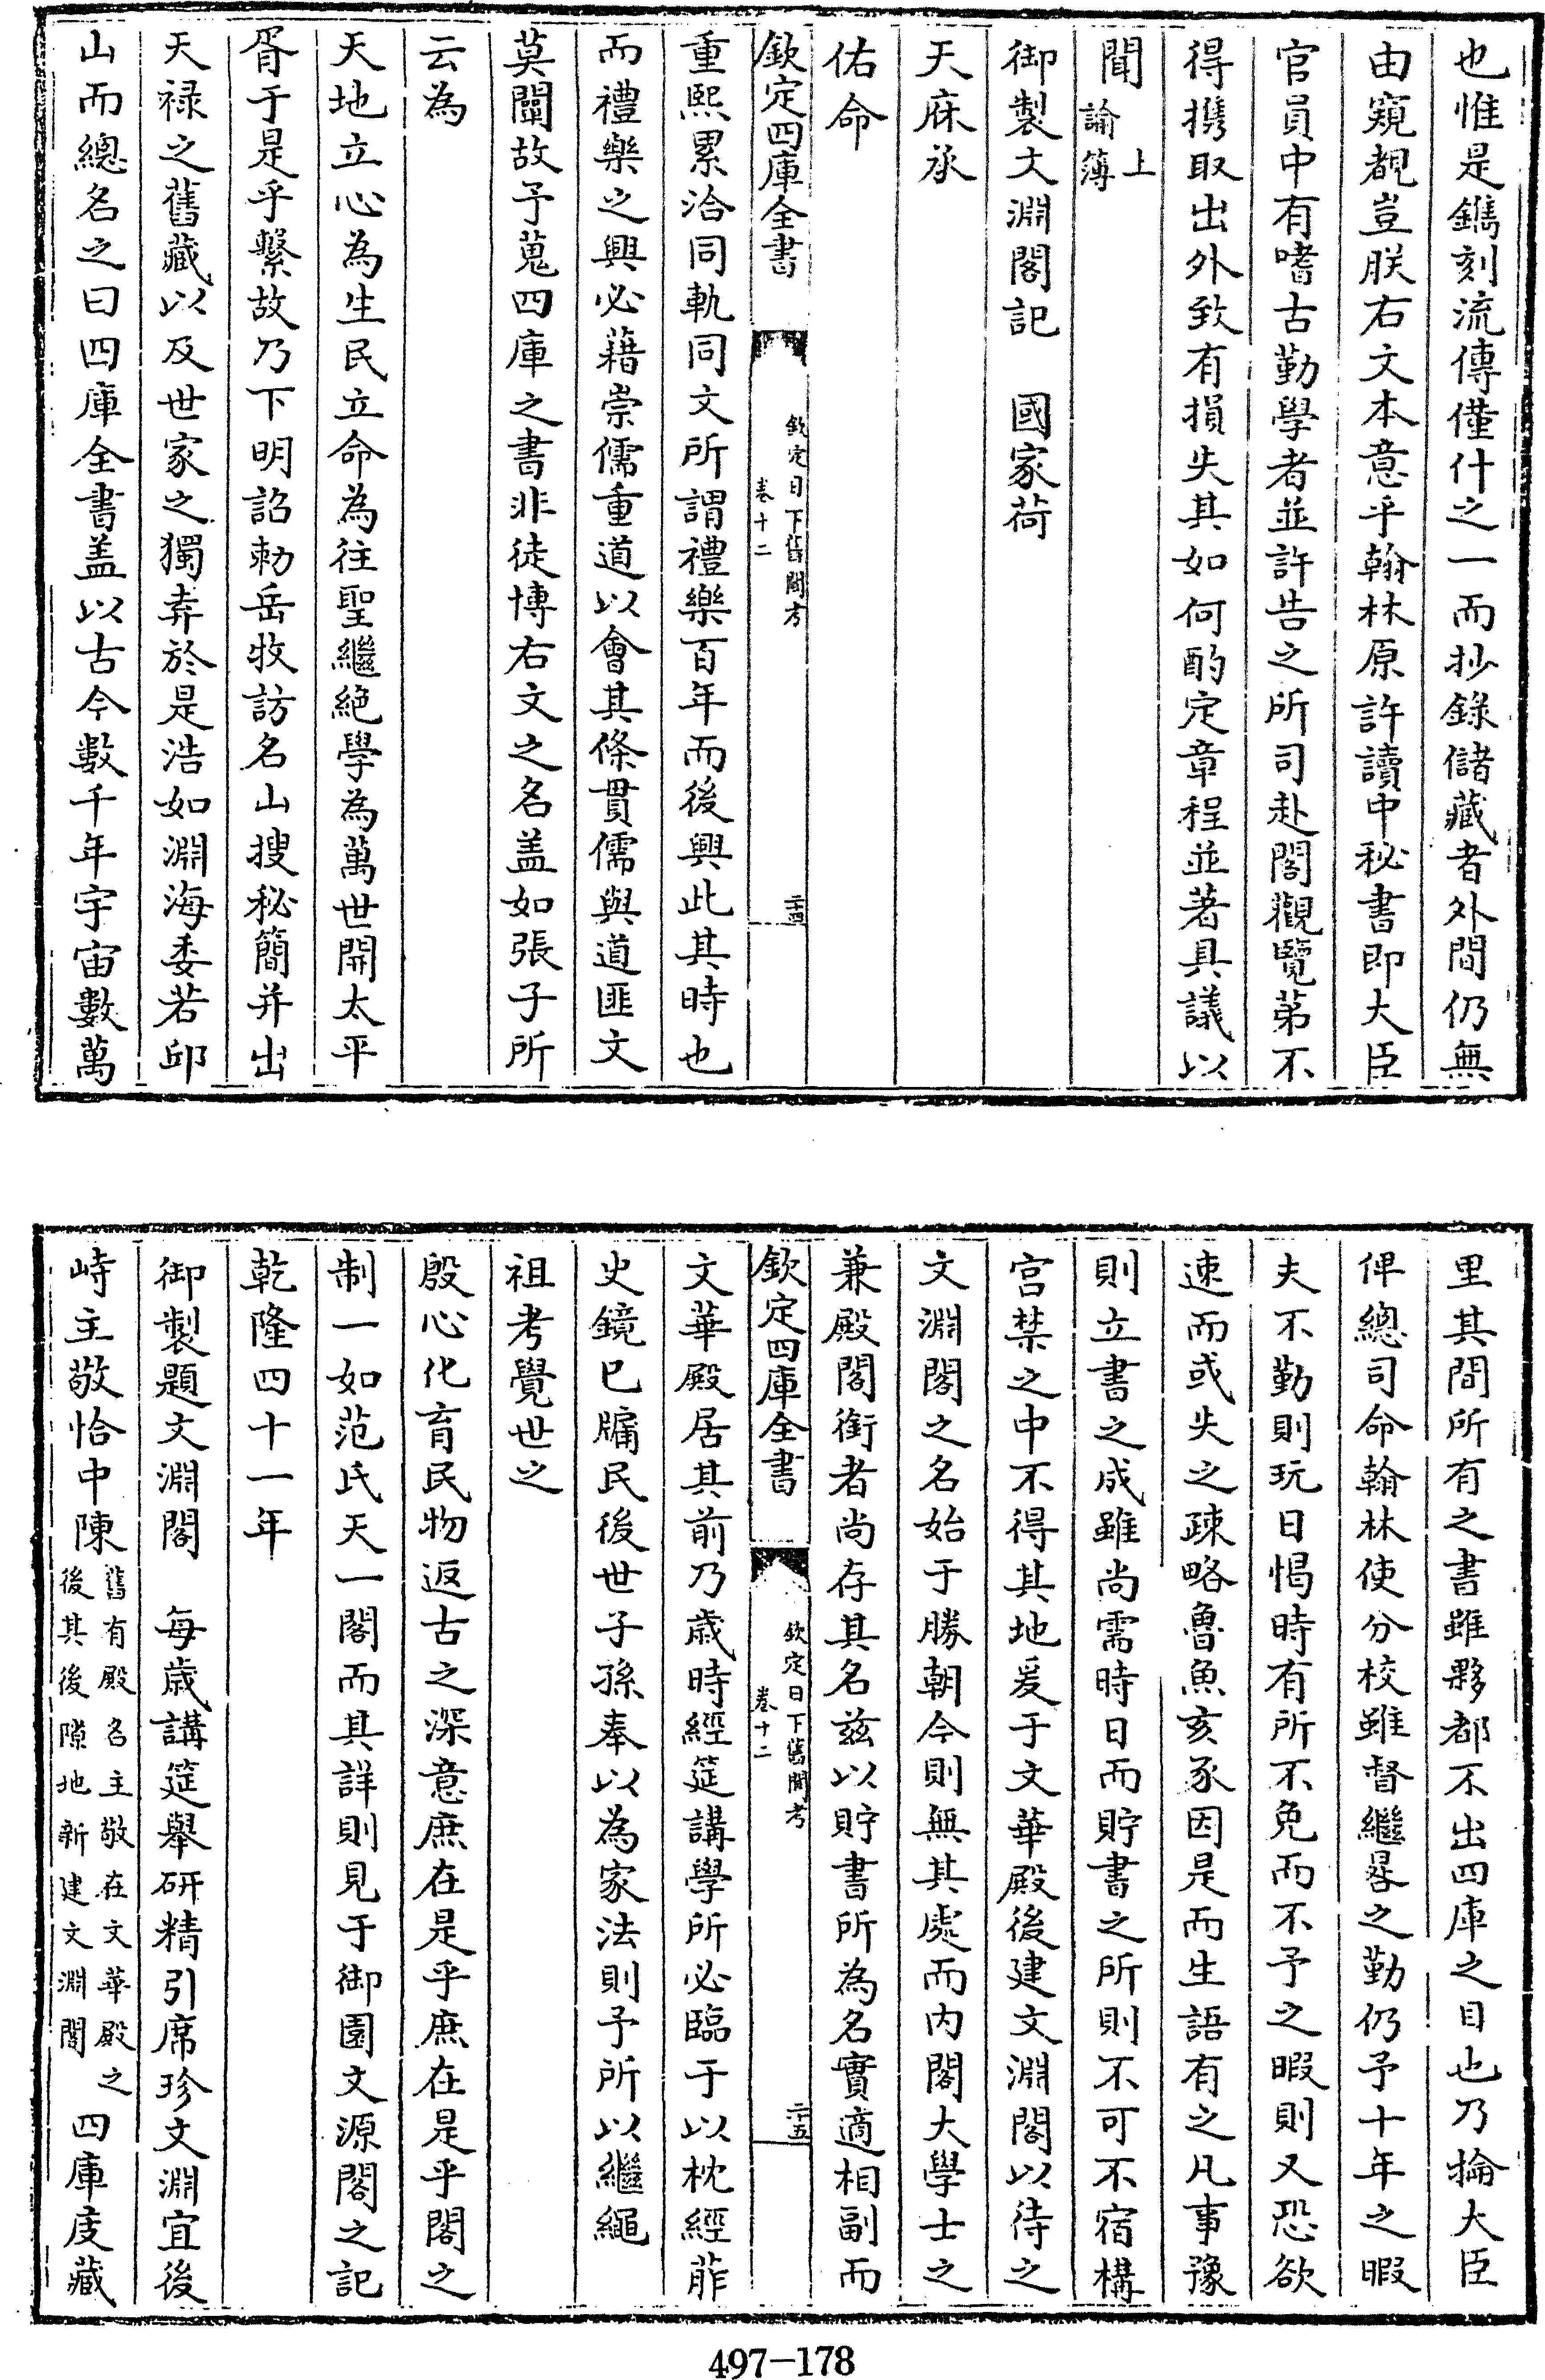 也惟是鐫刻流傳僅什之一而抄錄儲藏者外間仍無
由窺覩豈朕右文本意乎翰林原許讀中秘書即大臣
官員中有嗜古勤學者並許告之所司赴閣觀覽第不
得攜取出外致有損失其如何酌定章程並著具議以
聞上
諭簿
御製文淵閣記　國家荷
天庥承
佑命
欽定四庫全書
欽定日下舊聞考
卷十二
二十四
重熙累洽同軌同文所謂禮樂百年而後興此其時也
而禮樂之興必藉崇儒重道以會其條貫儒與道匪文
莫闡故予蒐四庫之書非徒博右文之名盖如張子所
云為
天地立心為生民立命為往聖繼絶學為萬世開太平
胥于是乎繫故乃下明詔勅岳牧訪名山搜秘簡并出
天禄之舊藏以及世家之獨弆於是浩如淵海委若邱
山而總名之曰四庫全書盖以古今數千年宇宙數萬
里其間所有之書雖夥都不出四庫之目也乃掄大臣
俾總司命翰林使分校雖督繼晷之勤仍予十年之暇
夫不勤則玩日愒時有所不免而不予之暇則又恐欲
速而或失之疎略魯魚亥豕因是而生語有之凡事豫
則立書之成雖尚需時日而貯書之所則不可不宿構
宫禁之中不得其地爰于文華殿後建文淵閣以待之
文淵閣之名始于勝朝今則無其處而内閣大學士之
兼殿閣銜者尚存其名兹以貯書所為名實適相副而
欽定四庫全書
欽定日下舊聞考
卷十二
二十五
文華殿居其前乃歲時經筵講學所必臨于以枕經葄
史鏡已牖民後世子孫奉以為家法則予所以繼繩
祖考覺世之
殷心化育民物返古之深意庶在是乎庶在是乎閣之
制一如范氏天一閣而其詳則見于御園文源閣之記
乾隆四十一年
御製題文淵閣　每歲講筵舉研精引席珍文淵宜後
峙主敬恰中陳舊有殿名主敬在文華殿之
後其後隙地新建文淵閣四庫庋藏
497-178